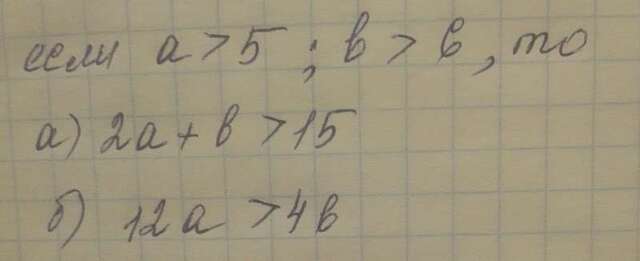 если a > 5 ; b > 6, то
а) 2a + b > 15
б) 12a > 4b